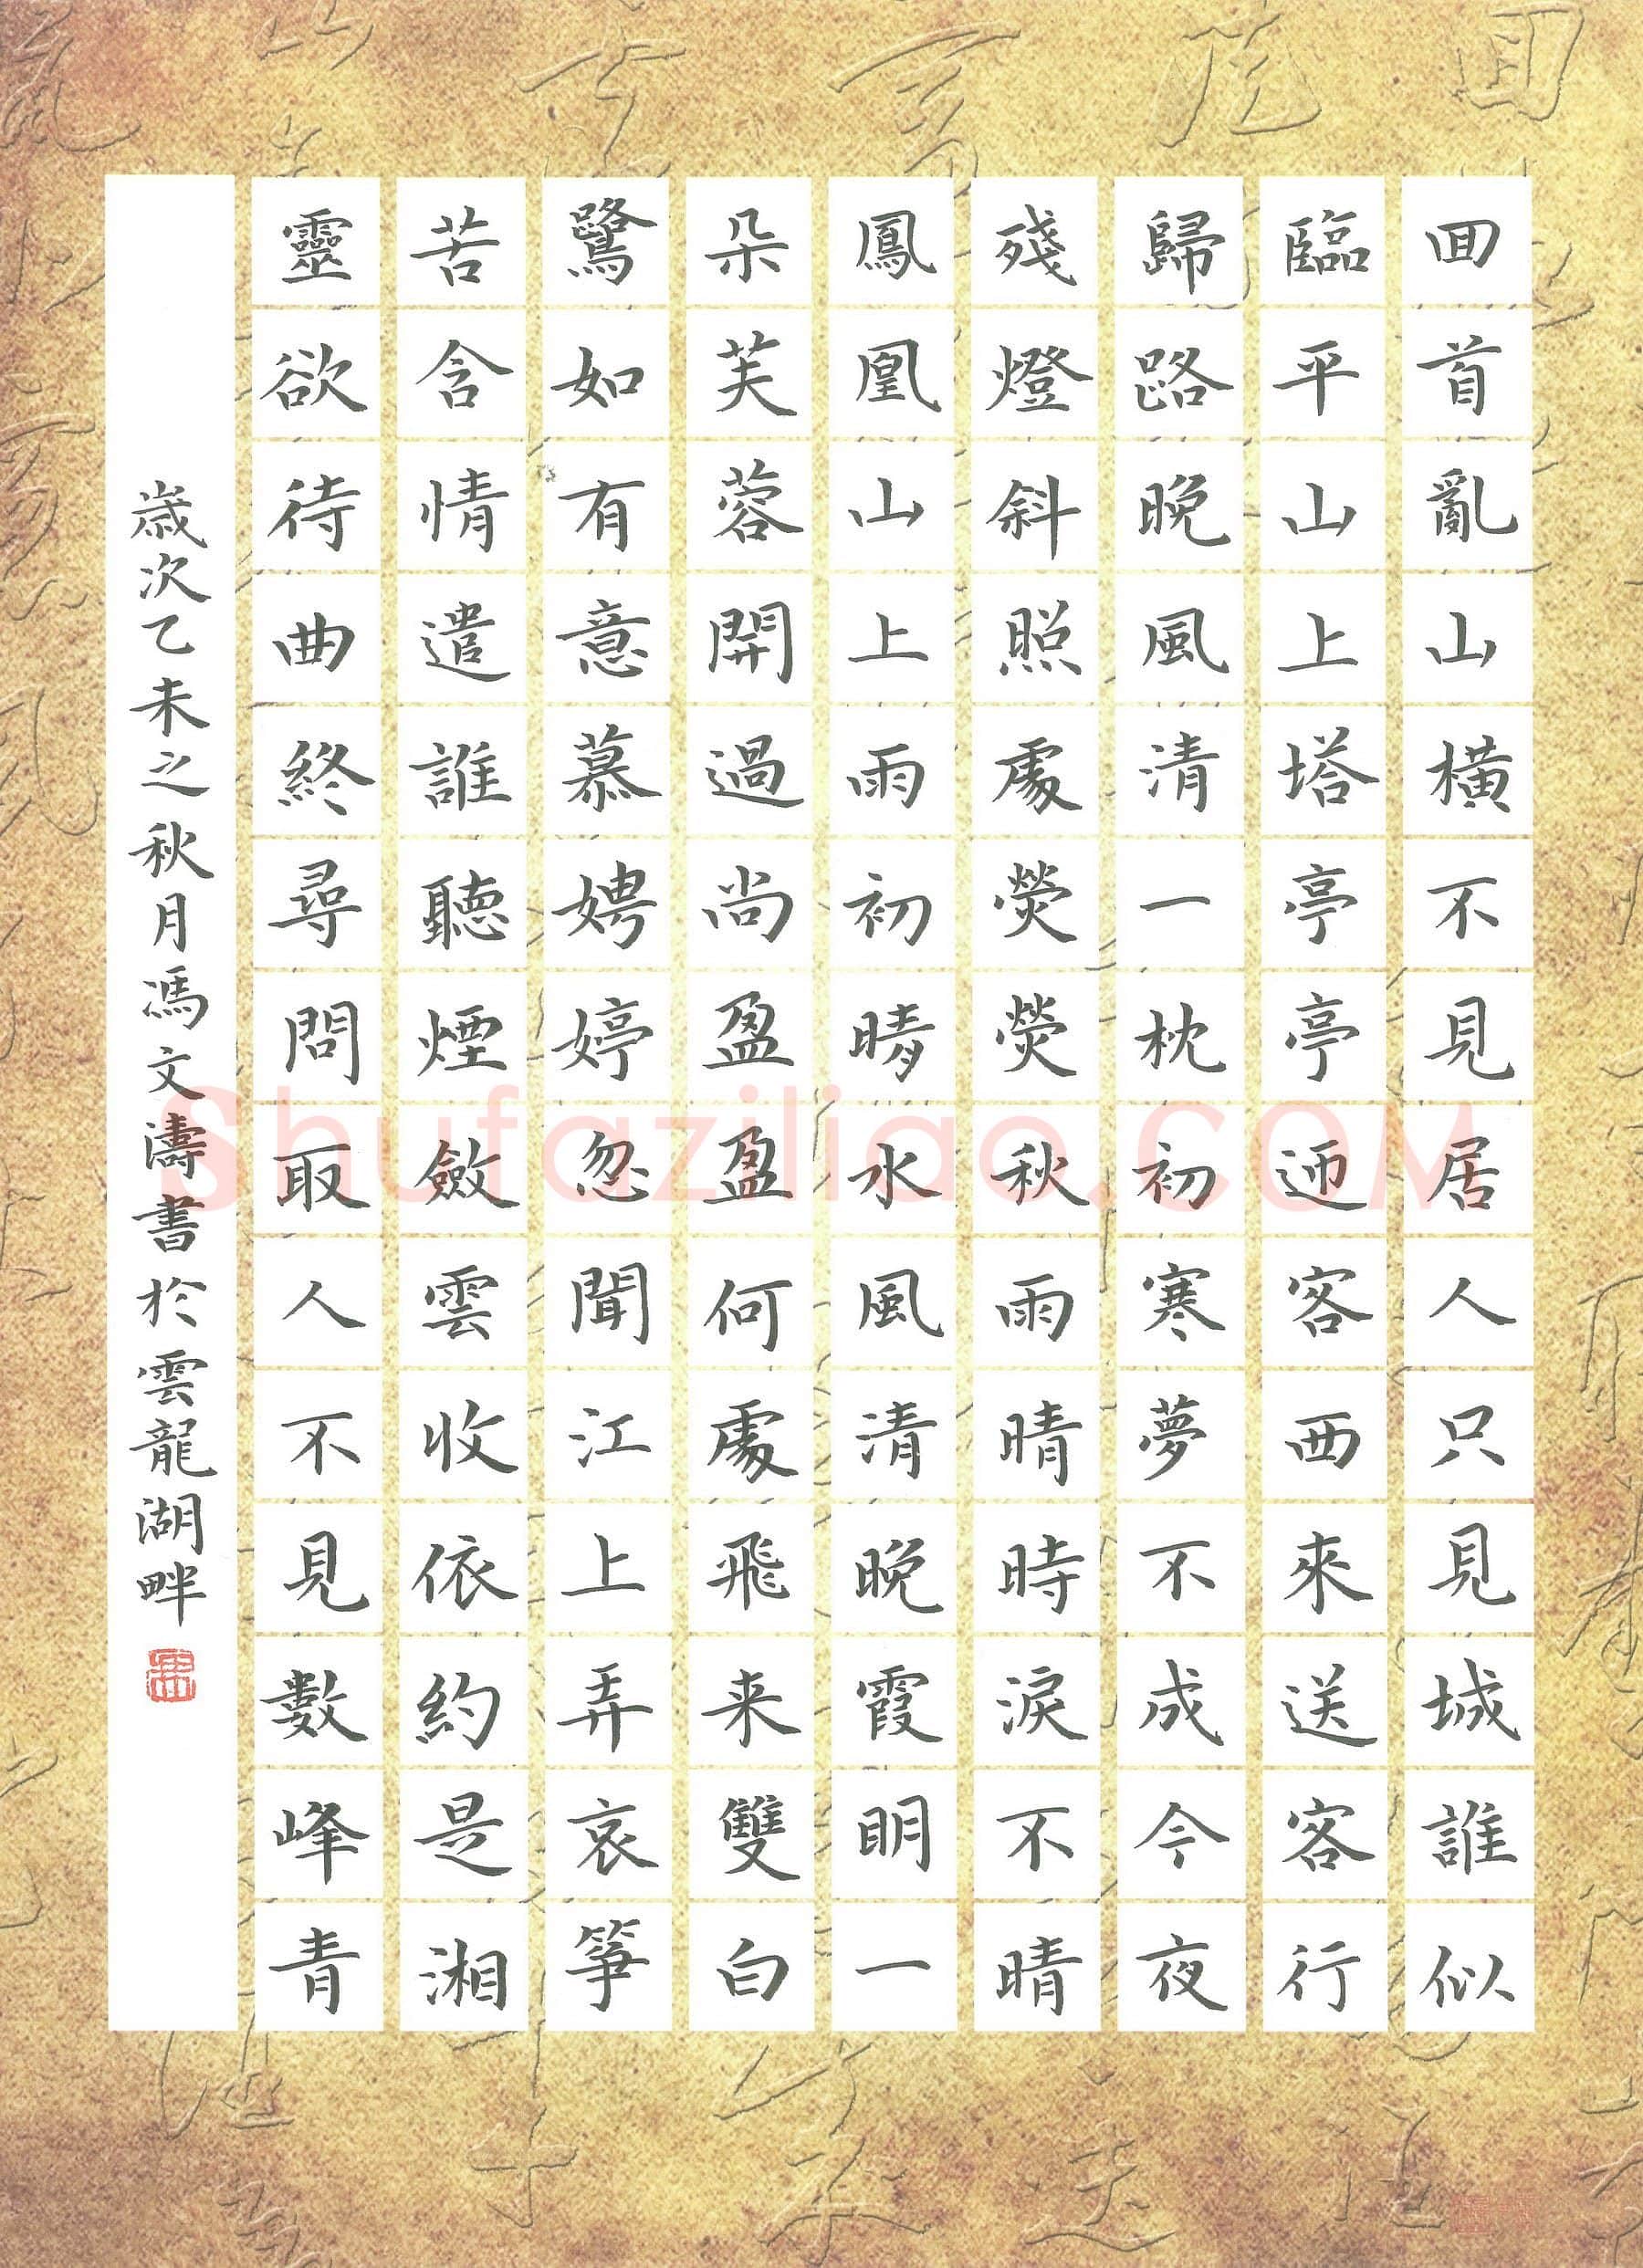 回首亂山橫不見居人只見城誰似
臨平山上塔亭亭迊客西來送客行
歸路晚風清一枕初寒夢不成今夜
殘燈斜照處熒熒秋雨晴時淚不晴
鳳凰山上雨初晴水風清晚霞明一
朵芙蓉開過尚盈盈何處飛来雙白
鷺如有意慕娉婷忽聞江上弄哀箏
苦含情遣誰聽煙斂雲收依約是湘
靈欲待曲終尋問取人不見數峰青
歳次乙未之秋月馮文濤書於雲龍湖畔
Shufaziliao.COM